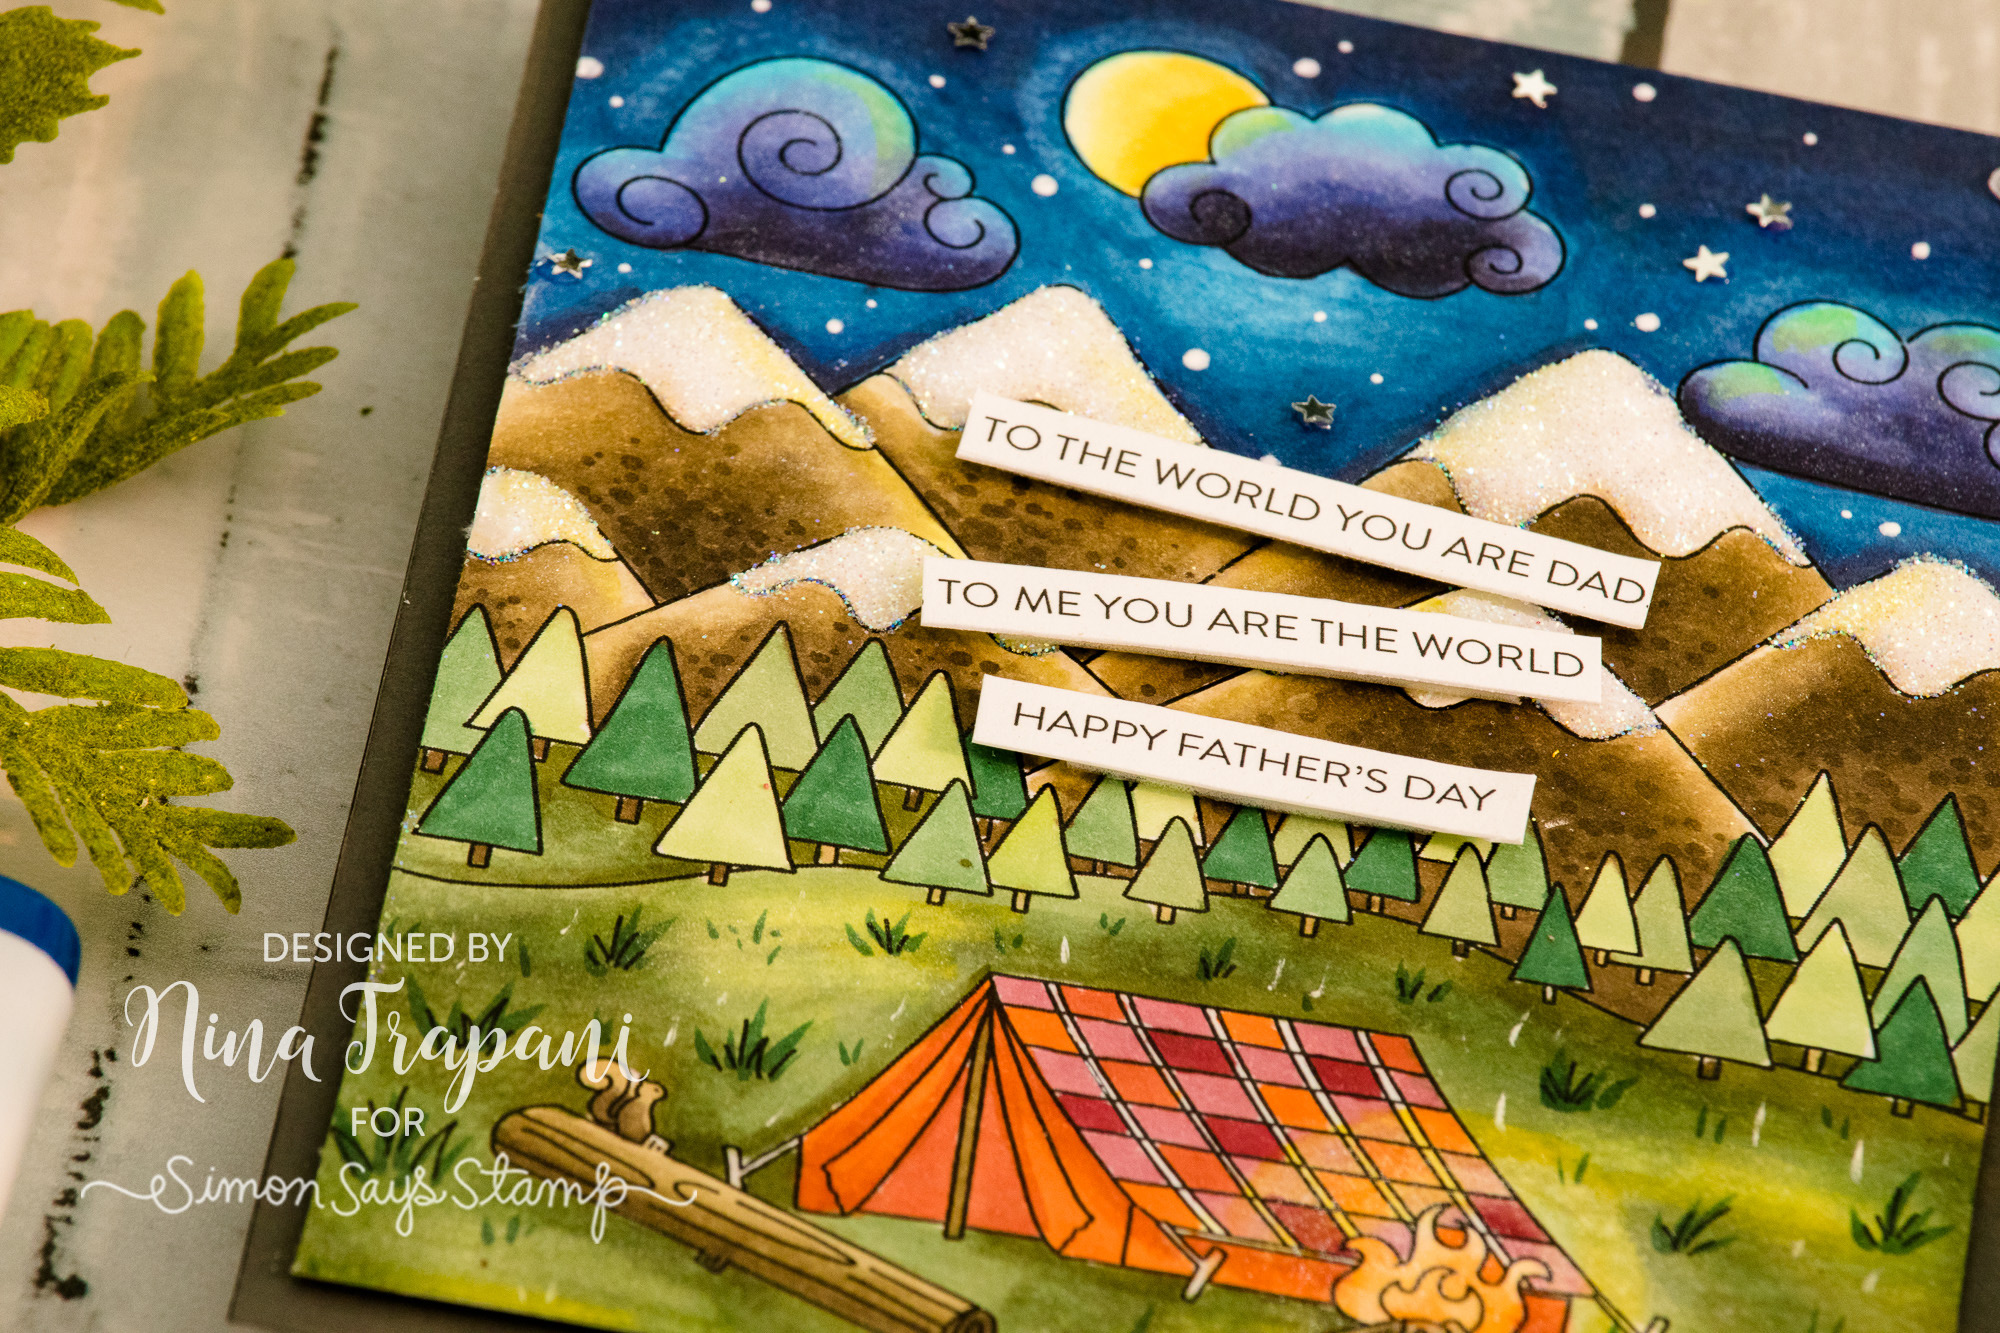 TO THE WORLD YOU ARE DAD
TO ME YOU ARE THE WORLD
HAPPY FATHER'S DAY
DESIGNED BY
Nina Trapani
FOR
Simon Says Stamp